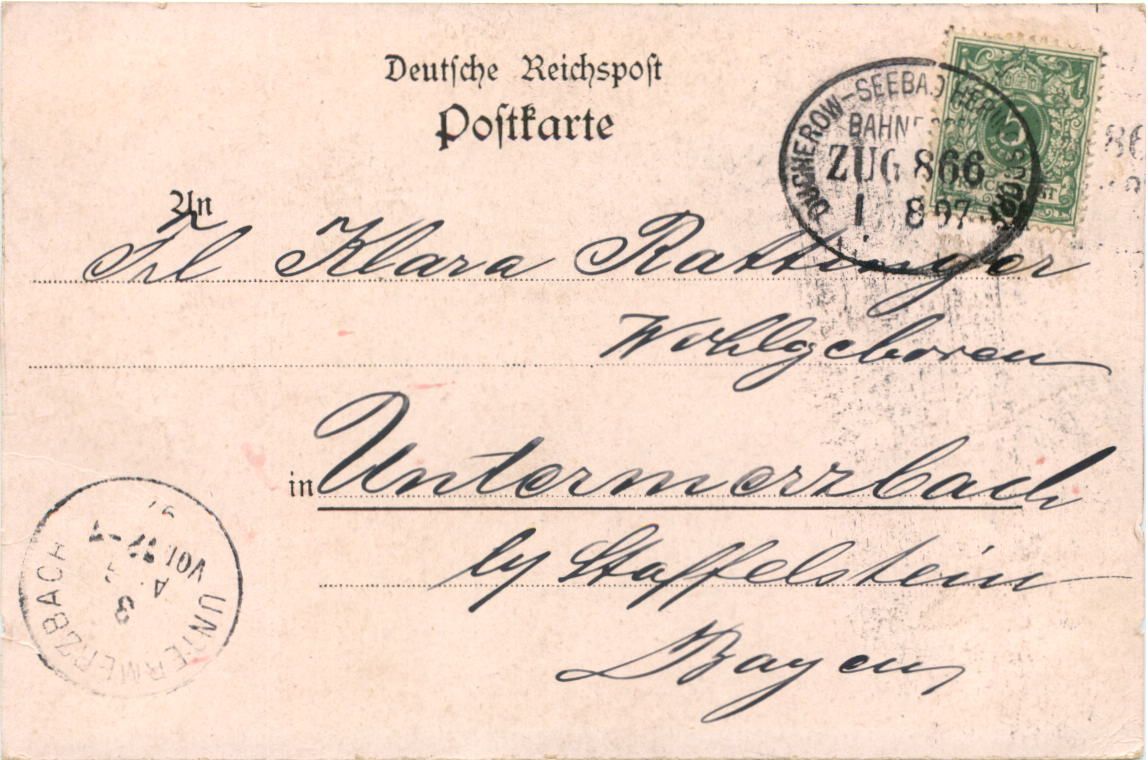 Deutsche Reichspost
Postkarte
DUCHEROW-SEEBAD HERINGSDORF
BAHNPOST
ZUG 866
1 8 97
An
Frl Klara Rattinger
Wohlgeboren
in Untermerzbach
by Staffelstein
Bayern
UNTERMERZBACH
3